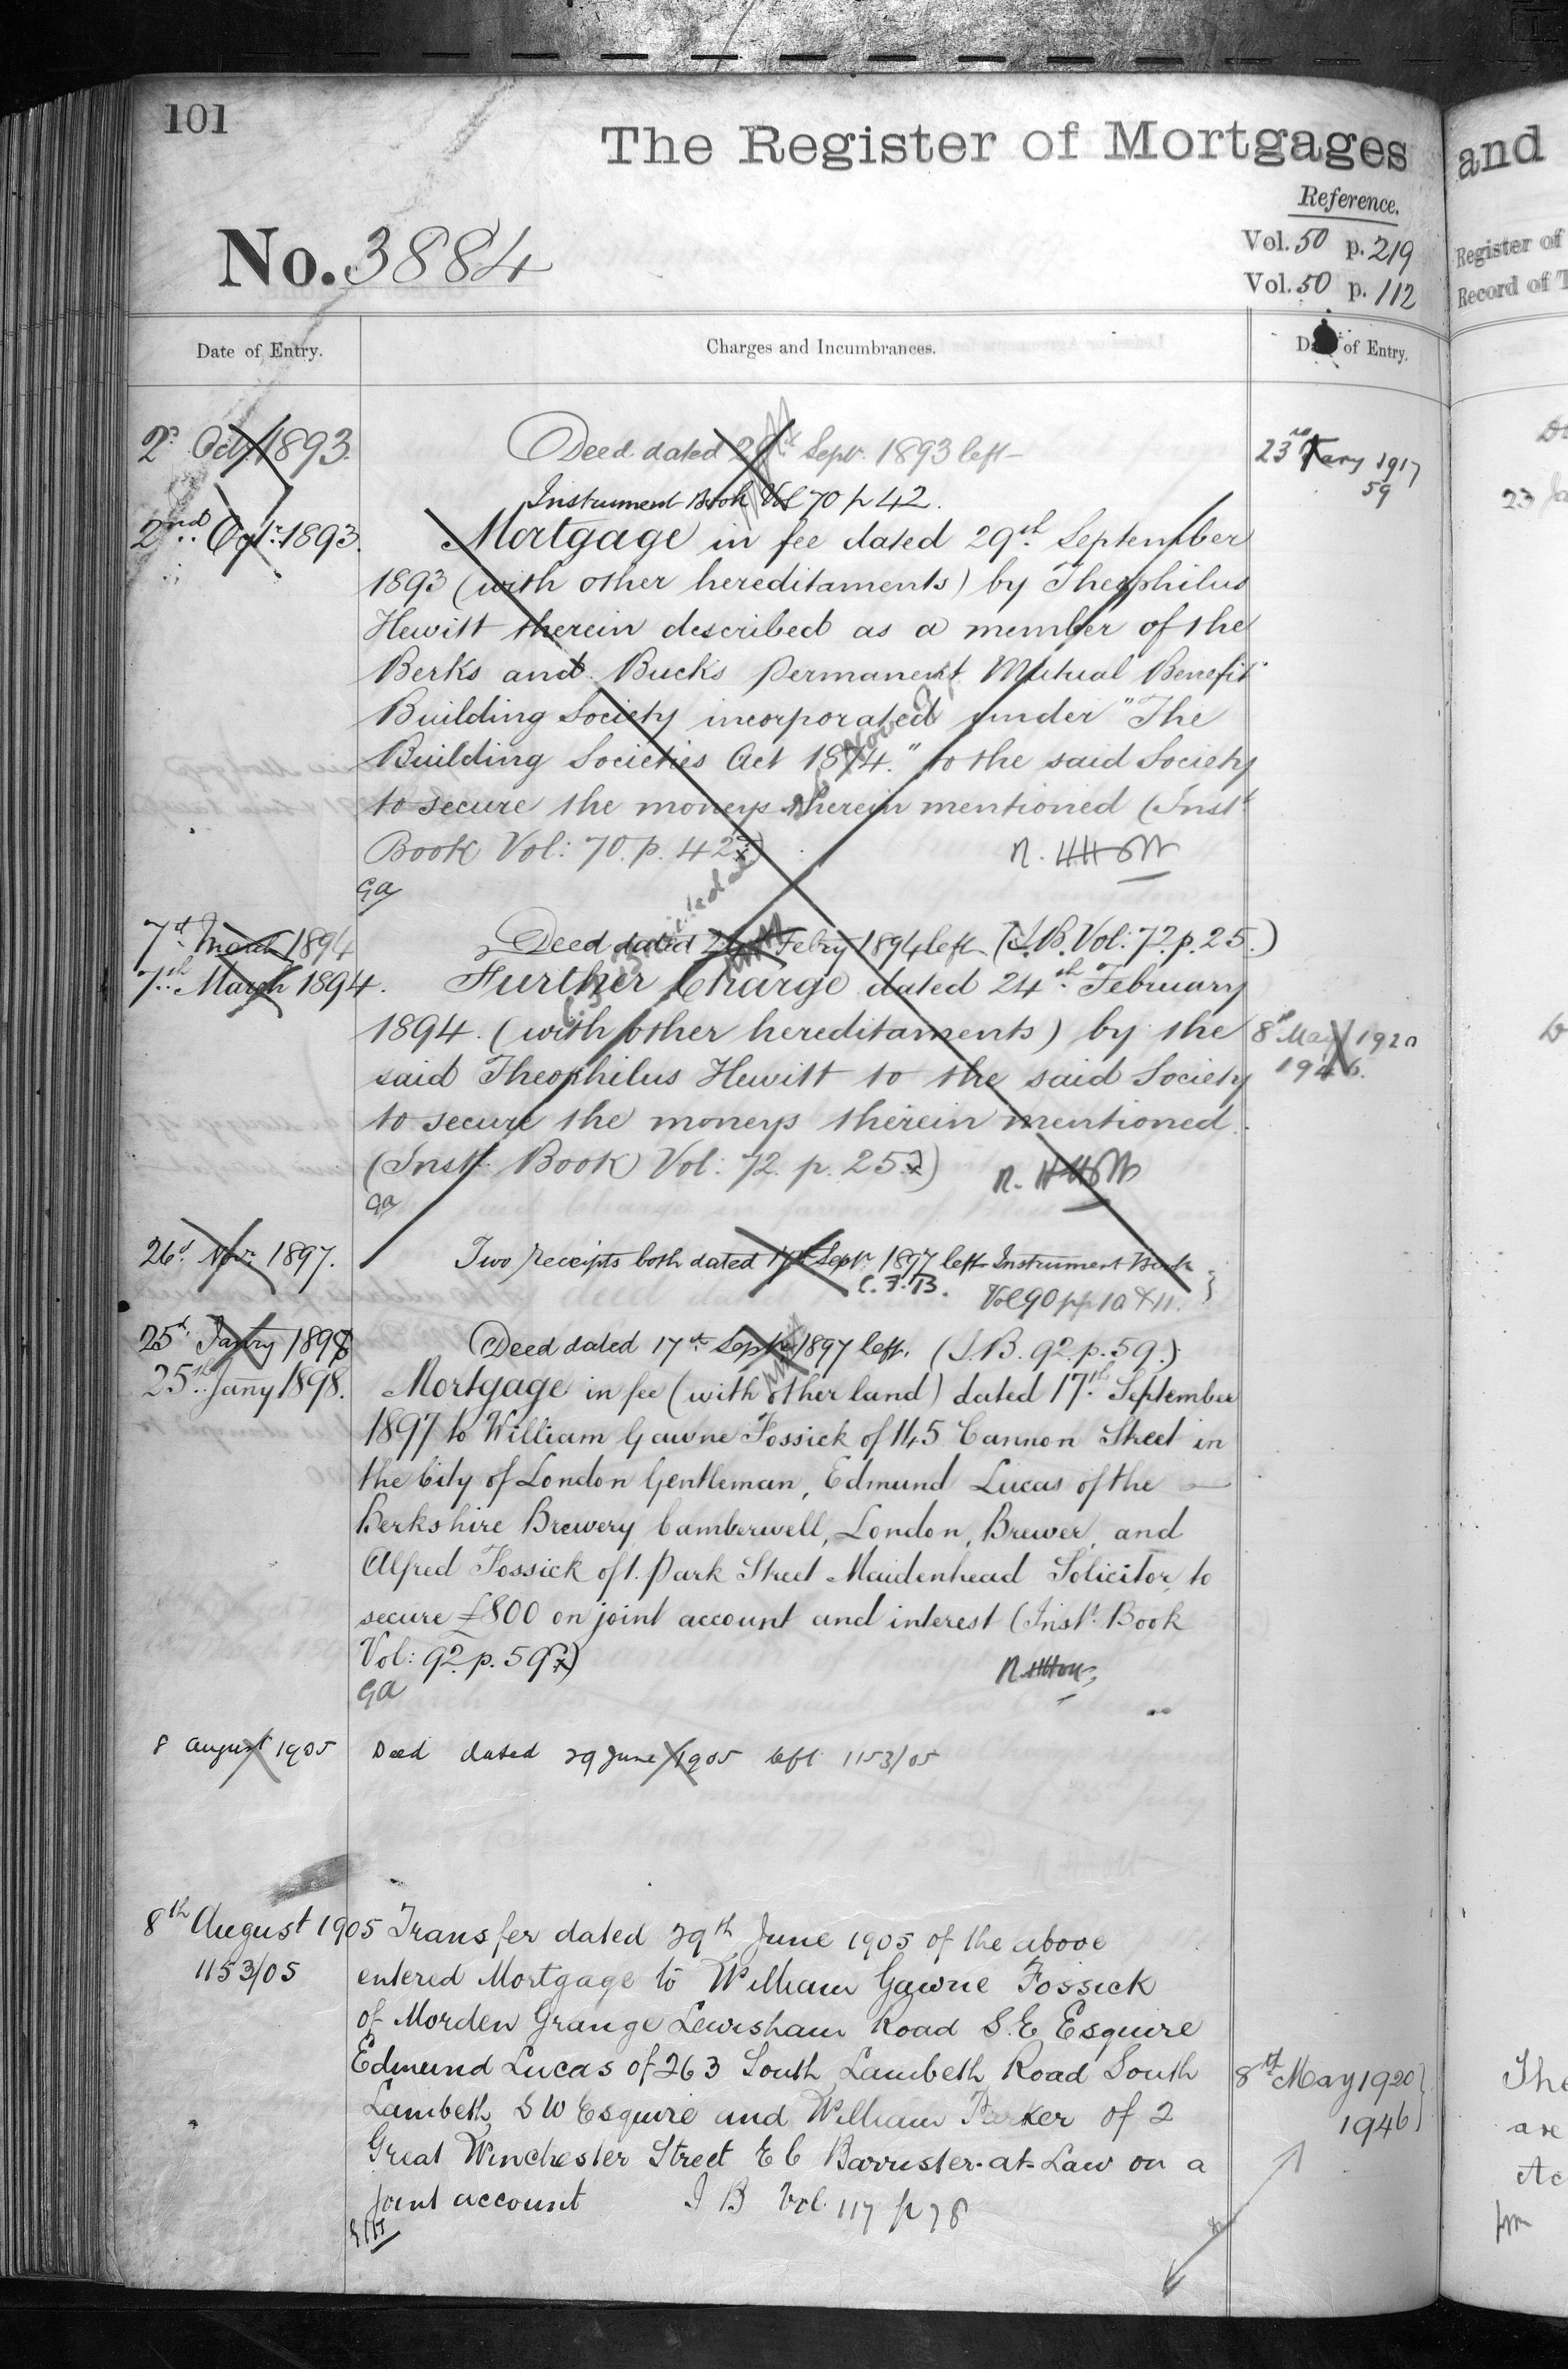 101
The Register of Mortgages
and
Reference.
No. 3884
Vol. 50 p. 219
Vol. 50 p. 112
Register of
Record of T
Date of Entry.
Charges and Incumbrances.
of Entry.
2d Oct 1893.
Deed dated 29th Sept. 1893 left
23rd Jany 1917
59
Instrument Book Vol 70 p 42.
2nd Oct: 1893.
Mortgage in fee dated 29th September
1893 (with other hereditaments) by Theophilus
Hewitt therein described as a member of the
Berks and Bucks Permanent Mutual Benefit
Building Society incorporated under "The
Building Societies Act 1874." to the said Society
to secure the moneys therein mentioned (Inst.t
Book Vol: 70. p. 42)
GA
7th March 1894
Deed dated 24th Febry 1894 left (I.B. Vol: 72. p. 25.)
7th March 1894.
Further Charge dated 24th February
1894. (with other hereditaments) by the
8th May 1920
said Theophilus Hewitt to the said Society
1946.
to secure the moneys therein mentioned.
(Inst. Book Vol: 72. p. 25)
GA
26th Nov. 1897.
Two receipts both dated 17th Sept. 1897 left Instrument Book
C.F.B. Vol 90 pp 10 & 11.
25th Janry 1898
Deed dated 17th Septr 1897 left. (I.B. 92. p. 59.)
25th Jany 1898.
Mortgage in fee (with other land) dated 17th September
1897 to William Gawne Fossick of 145 Cannon Street in
the City of London Gentleman, Edmund Lucas of the
Berkshire Brewery, Camberwell, London, Brewer, and
Alfred Fossick of 1. Park Street Maidenhead Solicitor, to
secure £800 on joint account and interest (Inst. Book
Vol: 92. p. 59)
GA
8 August 1905
Deed dated 29 June 1905 left 1153/05
8th August 1905
Transfer dated 29th June 1905 of the above
1153/05
entered Mortgage to William Gawne Fossick
of Morden Grange Lewisham Road S.E Esquire
Edmund Lucas of 263 South Lambeth Road South
8th May 1920
Lambeth S W Esquire and William Parker of 2
1946
Great Winchester Street E C Barrister-at-Law on a
joint account I B Vol. 117 p 78
23 Ja
The
are